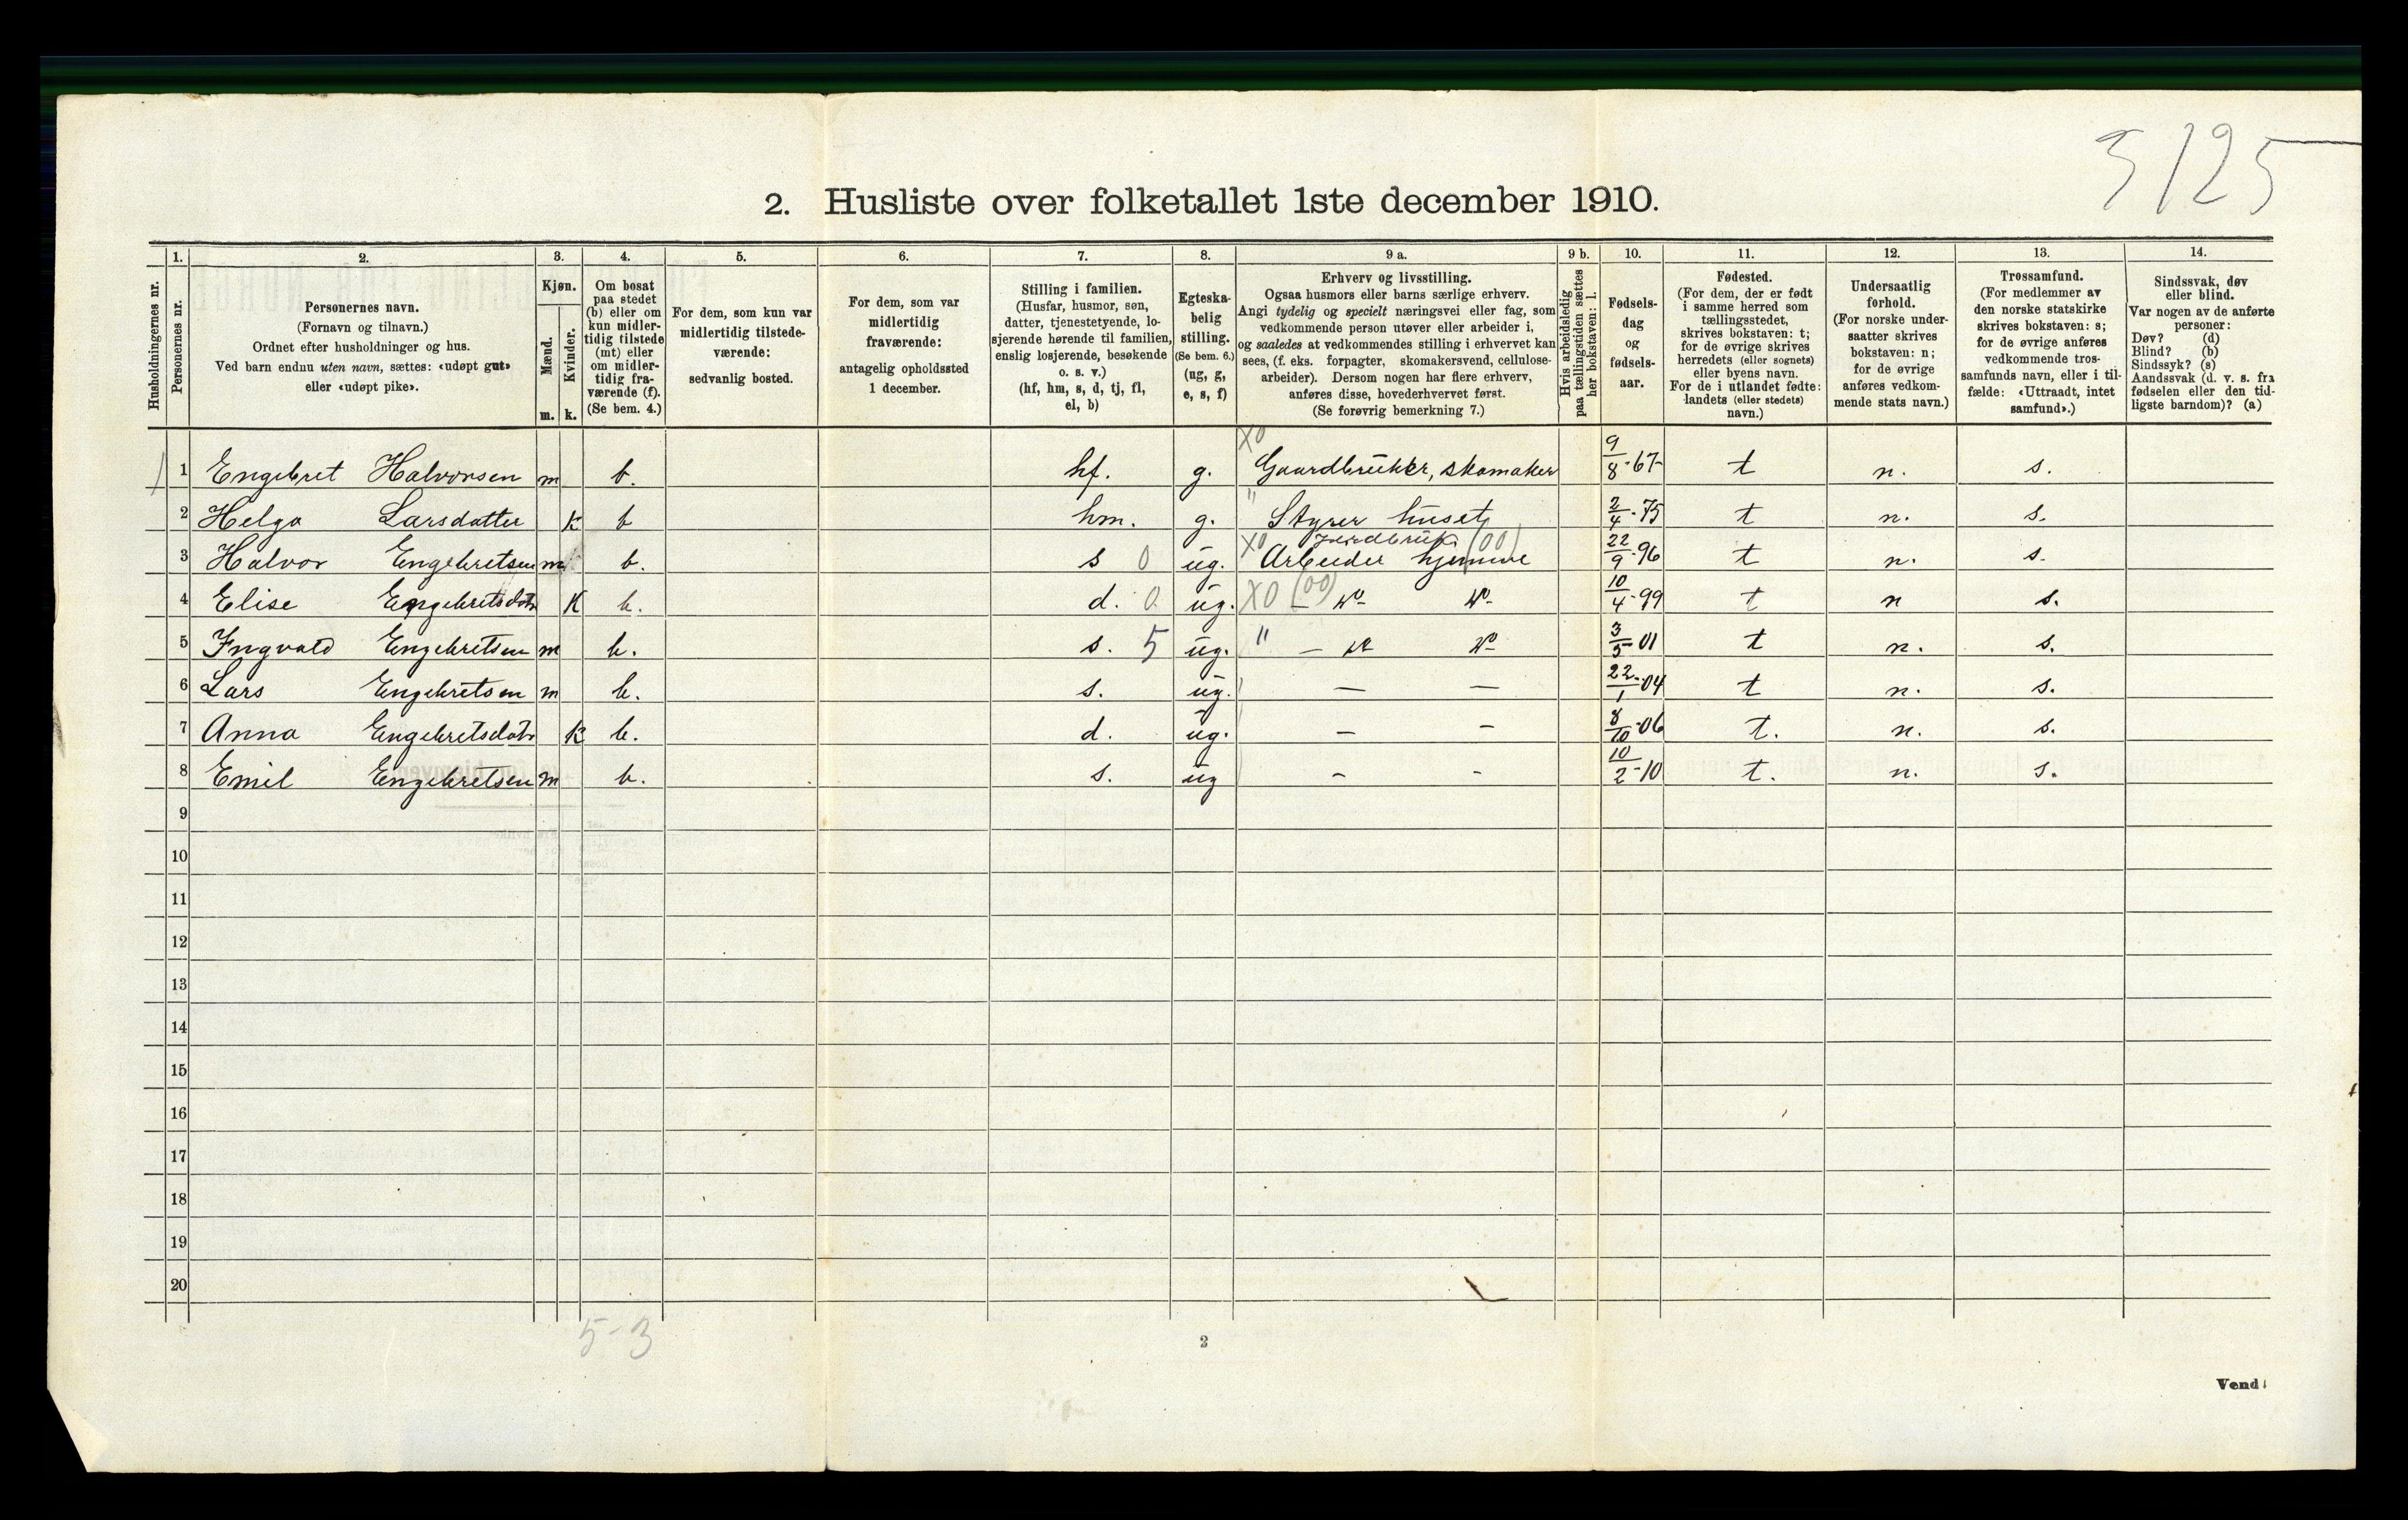 3125
2. Husliste over folketallet 1ste december 1910.
1. 2. 3. 4. 5. 6. 7. 8. 9 a. 9 b. 10. 11. 12. 13. 14.
Husholdningernes nr.
Personernes nr.
Personernes navn.
(Fornavn og tilnavn.)
Ordnet efter husholdninger og hus.
Ved barn endnu uten navn, sættes: «udøpt gut»
eller «udøpt pike».
Kjøn.
Mænd.
Kvinder.
m. k.
Om bosat
paa stedet
(b) eller om
kun midler-
tidig tilstede
(mt) eller
om midler-
tidig fra-
værende (f).
(Se bem. 4.)
For dem, som kun var
midlertidig tilstede-
værende:
sedvanlig bosted.
For dem, som var
midlertidig
fraværende:
antagelig opholdssted
1 december.
Stilling i familien.
(Husfar, husmor, søn,
datter, tjenestetyende, lo-
sjerende hørende til familien,
enslig losjerende, besøkende
o. s. v.)
(hf, hm, s, d, tj, fl,
el, b)
Egteska-
belig
stilling.
(Se bem. 6.)
(ug, g,
e, s, f)
Erhverv og livsstilling.
Ogsaa husmors eller barns særlige erhverv.
Angi tydelig og specielt næringsvei eller fag, som
vedkommende person utøver eller arbeider i,
og saaledes at vedkommendes stilling i erhvervet kan
sees, (f. eks. forpagter, skomakersvend, cellulose-
arbeider). Dersom nogen har flere erhverv,
anføres disse, hovederhvervet først.
(Se forøvrig bemerkning 7.)
Hvis arbeidsledig
paa tællingstiden sættes
her bokstaven: l.
Fødsels-
dag
og
fødsels-
aar.
Fødested.
(For dem, der er født
i samme herred som
tællingsstedet,
skrives bokstaven: t;
for de øvrige skrives
herredets (eller sognets)
eller byens navn.
For de i utlandet fødte:
landets (eller stedets)
navn.)
Undersaatlig
forhold.
(For norske under-
saatter skrives
bokstaven: n;
for de øvrige
anføres vedkom-
mende stats navn.)
Trossamfund.
(For medlemmer av
den norske statskirke
skrives bokstaven: s;
for de øvrige anføres
vedkommende tros-
samfunds navn, eller i til-
fælde: «Uttraadt, intet
samfund».)
Sindssvak, døv
eller blind.
Var nogen av de anførte
personer:
Døv? (d)
Blind? (b)
Sindssyk? (s)
Aandssvak (d. v. s. fra
fødselen eller den tid-
ligste barndom)? (a)
X0
1 Engebret Halvorsen m b. hf. g. Gaardbruker, skomaker 9/8-67 t n. s.
2 Helga Larsdatter k b hm. g. " Styrer huset 2/4-75 t n. s.
Jordbruk (00)
3 Halvor Engebretsen m b. s 0 ug. X0 Arbeider hjemme 22/9-96 t n. s.
4 Elise Engebretsdatr K b. d. 0 ug. X0 (00) - do do 10/4-99 t n s.
5 Ingvald Engebretsen m b. s. 5 ug. " - do do 3/5-01 t n. s.
6 Lars Engebretsen m b. s. ug. — — 22/1-04 t n. s.
7 Anna Engebretsdatr K b. d. ug. — - 8/10-06 t. n. s.
8 Emil Engebretsen m b. s. ug - - 10/2-10 t. n. s.
9
10
11
12
13
14
15
16
17
18
19
20
5-3
2
Vend!